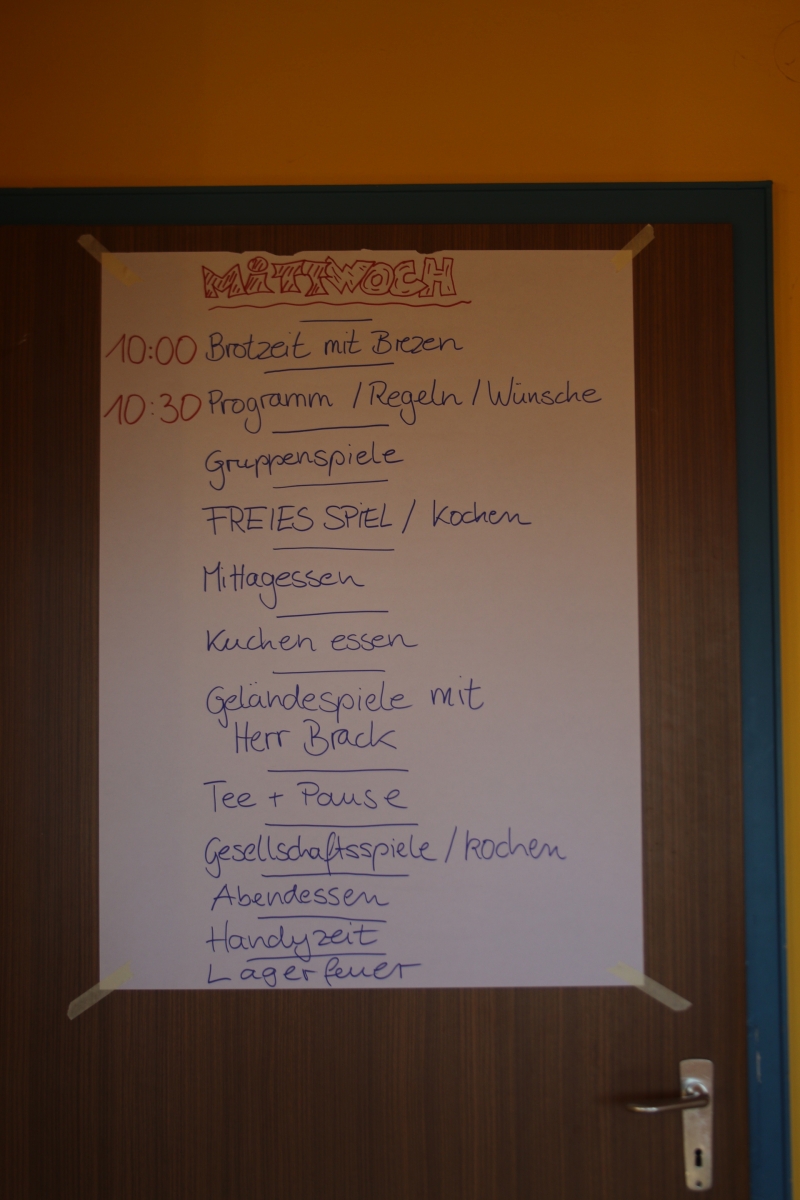 MITTWOCH
10:00 Brotzeit mit Brezen
10:30 Programm / Regeln / Wünsche
Gruppenspiele
FREIES SPIEL / kochen
Mittagessen
Kuchen essen
Geländespiele mit
Herr Brack
Tee + Pause
Gesellschaftsspiele / kochen
Abendessen
Handyzeit
Lagerfeuer